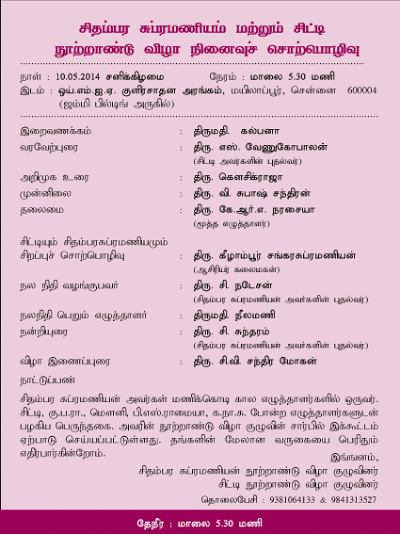 சிதம்பர சுப்ரமணியம் மற்றும் சிட்டி
நூற்றாண்டு விழா நினைவுச் சொற்பொழிவு
நாள் : 10.05.2014 சனிக்கிழமை நேரம் : மாலை 5.30 மணி
இடம் : ஒய்.எம்.ஐ.ஏ. குளிர்சாதன அரங்கம், மயிலாப்பூர், சென்னை 600004
(ஜம்மி பில்டிங் அருகில்)
இறைவணக்கம் : திருமதி. கல்பனா
வரவேற்புரை : திரு. எஸ். வேணுகோபாலன்
(சிட்டி அவர்களின் புதல்வர்)
அறிமுக உரை : திரு. கௌசிக்ராஜா
முன்னிலை : திரு. வி. சுபாஷ் சந்திரன்
தலைமை : திரு. கே.ஆர்.எ. நரசையா
(மூத்த எழுத்தாளர்)
சிட்டியும் சிதம்பரசுப்ரமணியமும்
சிறப்புச் சொற்பொழிவு : திரு. கீழாம்பூர் சங்கரசுப்ரமணியன்
(ஆசிரியர் கலைமகள்)
நல நிதி வழங்குபவர் : திரு. சி. நடேசன்
(சிதம்பர சுப்ரமணியன் அவர்களின் புதல்வர்)
நலநிதி பெறும் எழுத்தாளர் : திருமதி. நீலமணி
நன்றியுரை : திரு. சி. சுந்தரம்
(சிதம்பர சுப்ரமணியன் அவர்களின் புதல்வர்)
விழா இணைப்புரை : திரு. சி.வி. சந்திர மோகன்
நாட்டுப்பண்
சிதம்பர சுப்ரமணியன் அவர்கள் மணிக்கொடி கால எழுத்தாளர்களில் ஒருவர்.
சிட்டி, கு.ப.ரா., மௌனி, பி.எஸ்.ராமையா, க.நா.சு. போன்ற எழுத்தாளர்களுடன்
பழகிய பெருந்தகை. அவரின் நூற்றாண்டு விழா குழுவின் சார்பில் இக்கூட்டம்
ஏற்பாடு செய்யப்பட்டுள்ளது. தங்களின் மேலான வருகையை பெரிதும்
எதிர்பார்கின்றோம்.
இங்ஙனம்,
சிதம்பர சுப்ரமணியன் நூற்றாண்டு விழா குழுவினர்
சிட்டி நூற்றாண்டு விழா குழுவினர்
தொலைபேசி : 9381064133 & 9841313527
தேநீர் : மாலை 5.30 மணி